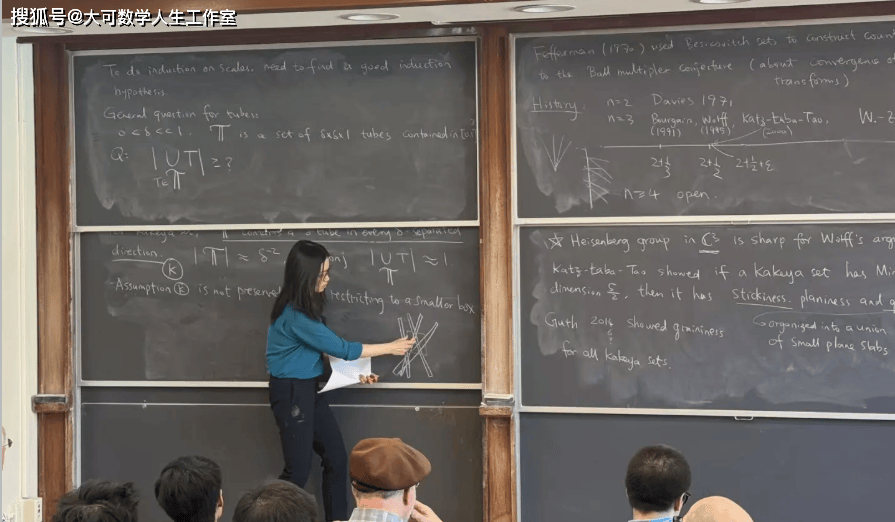 搜狐号@大可数学人生工作室
To do induction on scales, need to find a good induction
hypothesis.
General question for tubes:
0<δ<<1. 𝕋 is a set of δxδx1 tubes contained in
Q: |∪T| ≥ ?
T∈𝕋
tube in every δ-separated
direction. |𝕋| ≈ δ⁻², |∪T| ≈ 1.
K 𝕋
-Assumption K is not restricting to a smaller box
Fefferman (1970) used Besicovitch sets to construct
to the Ball multiplier conjecture (about convergence of
transforms)
History. n=2 Davies 1971
n=3 Bourgain, Wolff, Katz-Łaba-Tao, W.-Z
(1991) (1995) (2000)
2+1/3 2+1/2 2+1/2+ε
n≥4 open.
☆ Heisenberg group in ℂ³ is sharp for Wolff's
Katz-Łaba-Tao showed if a Kakeya set has
dimension 5/2, then it has stickiness, planiness and
organized into a union
of small plane slabs
Guth 2014 showed graininess
for all Kakeya sets.